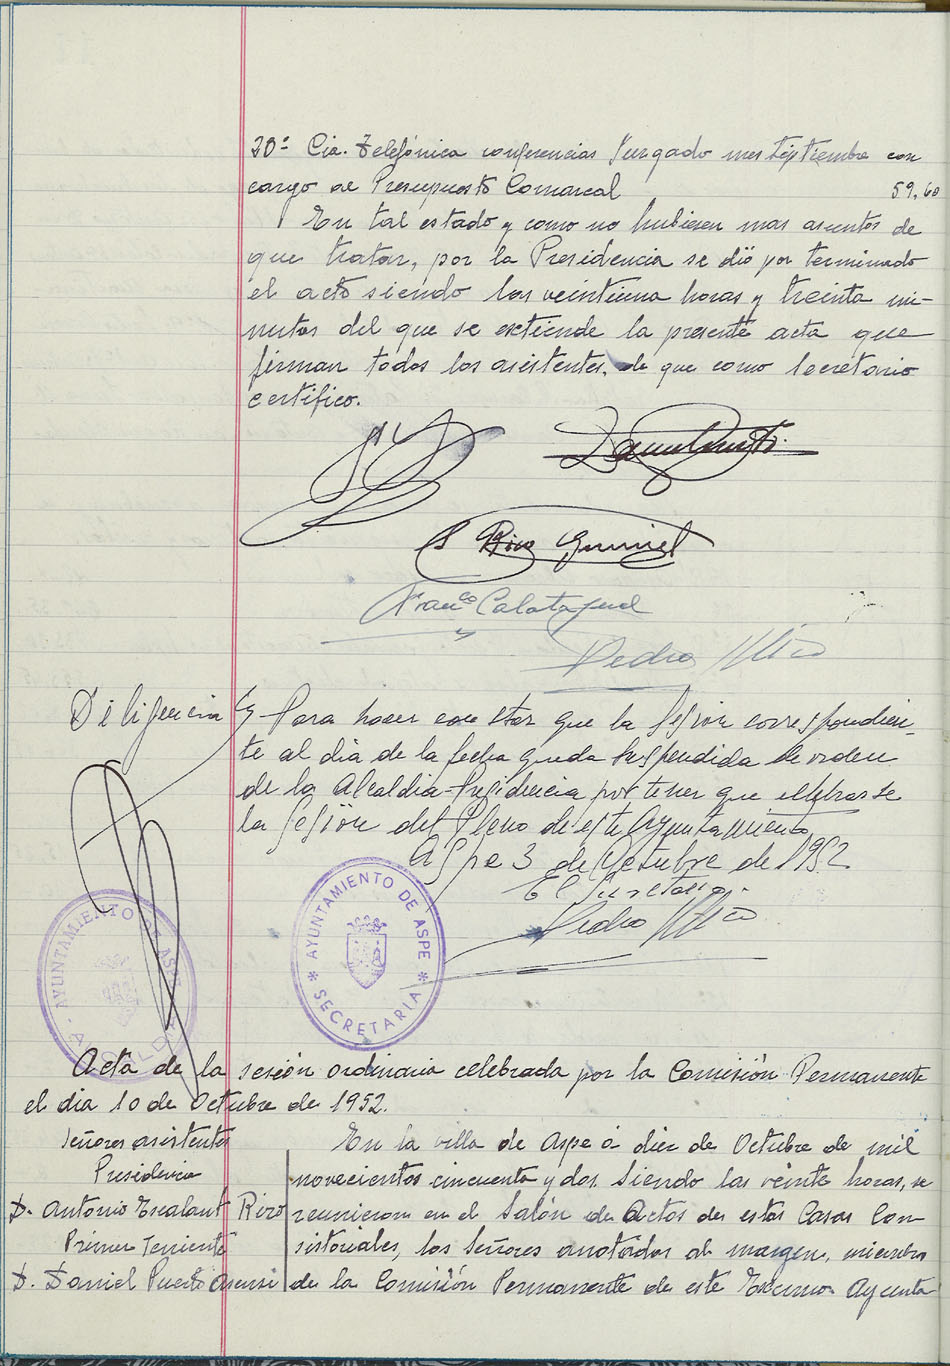 20º Cia. Telefónica conferencias Juzgado mes Septiembre con
cargo al Presupuesto Comarcal 59,60
En tal estado y como no hubieren mas asuntos de
que tratar, por la Presidencia se dió por terminado
el acto siendo las veintiuna horas y treinta mi-
nutos del que se extiende la presente acta que
firman todos los asistentes, de que como Secretario
certifico.
S Rico Gumiel
Franco Calatayud
Pedro
Diligencia Para hacer constar que la Sesión correspondien-
te al dia de la fecha queda suspendida de orden
de la Alcaldia-Presidencia por tener que celebrarse
la Sesión del Pleno de este Ayuntamiento
Aspe 3 de Octubre de 1952
El Secretario.
Pedro
AYUNTAMIENTO DE ASPE
* SECRETARIA *
AYUNTAMIENTO DE ASPE
- ALCALDIA
Acta de la sesión ordinaria celebrada por la Comisión Permanente
el dia 10 de Octubre de 1952.
Señores asistentes
Presidencia
D. Antonio Escalant Rizo
Primer Teniente
D. Daniel Puerto Asensi
En la villa de Aspe á diez de Octubre de mil
novecientos cincuenta y dos. Siendo las veinte horas, se
reunieron en el Salón de Actos de estas Casas Con-
sistoriales, los Señores anotados al margen, miembros
de la Comisión Permanente de este Excmo. Ayunta